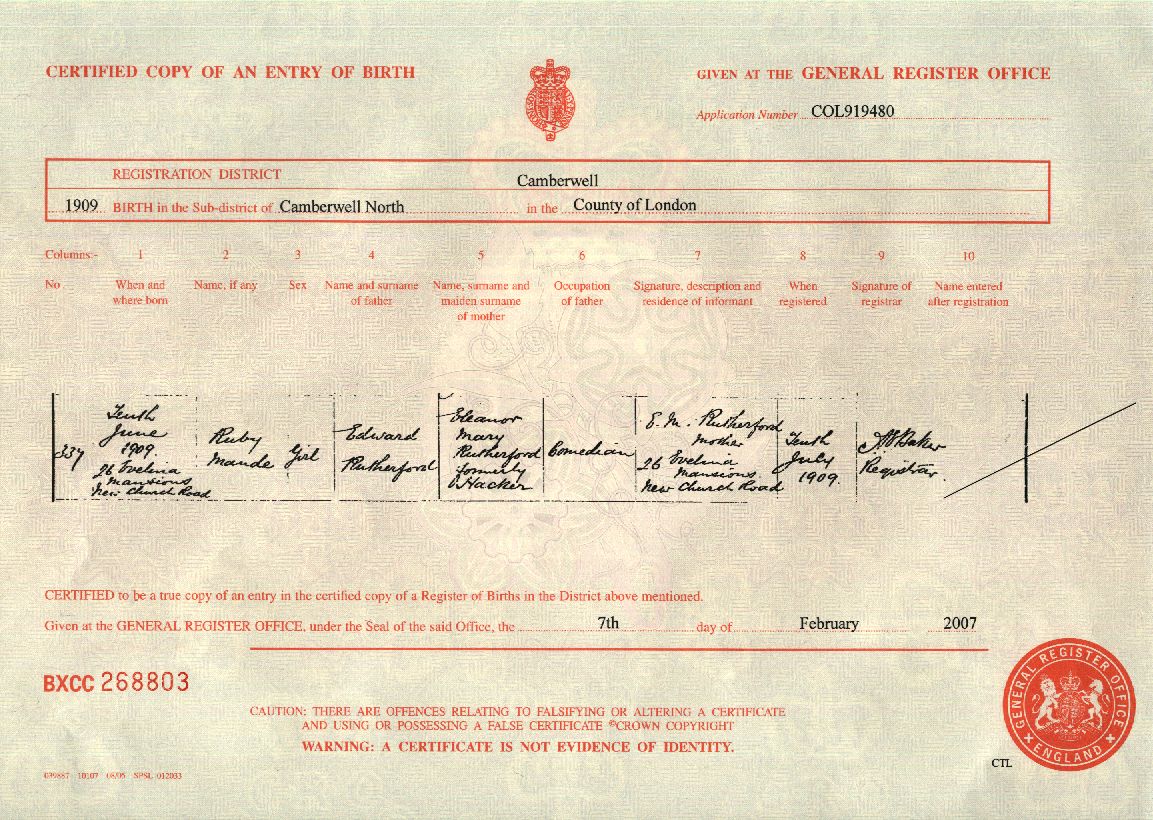 CERTIFIED COPY OF AN ENTRY OF BIRTH
GIVEN AT THE GENERAL REGISTER OFFICE
Application Number COL919480
REGISTRATION DISTRICT Camberwell
1909 BIRTH in the Sub-district of Camberwell North in the County of London
Columns:- 1 2 3 4 5 6 7 8 9 10
No
When and
where born
Name, if any
Sex
Name and surname
of father
Name, surname and
maiden surname
of mother
Occupation
of father
Signature, description and
residence of informant
When
registered
Signature of
registrar
Name entered
after registration
337
Tenth
June
1909.
26 Evelina
Mansions
New Church Road
Ruby
Maude
Girl
Edward
Rutherford
Eleanor
Mary
Rutherford
formerly
Hacker
Comedian
E. M. Rutherford
Mother
26 Evelina
Mansions
New Church Road
Tenth
July
1909.
Baker
Registrar.
CERTIFIED to be a true copy of an entry in the certified copy of a Register of Births in the District above mentioned.
Given at the GENERAL REGISTER OFFICE, under the Seal of the said Office, the 7th day of February 2007
BXCC 268803
CAUTION: THERE ARE OFFENCES RELATING TO FALSIFYING OR ALTERING A CERTIFICATE
AND USING OR POSSESSING A FALSE CERTIFICATE ©CROWN COPYRIGHT
WARNING: A CERTIFICATE IS NOT EVIDENCE OF IDENTITY.
GENERAL REGISTER OFFICE
ENGLAND
CTL